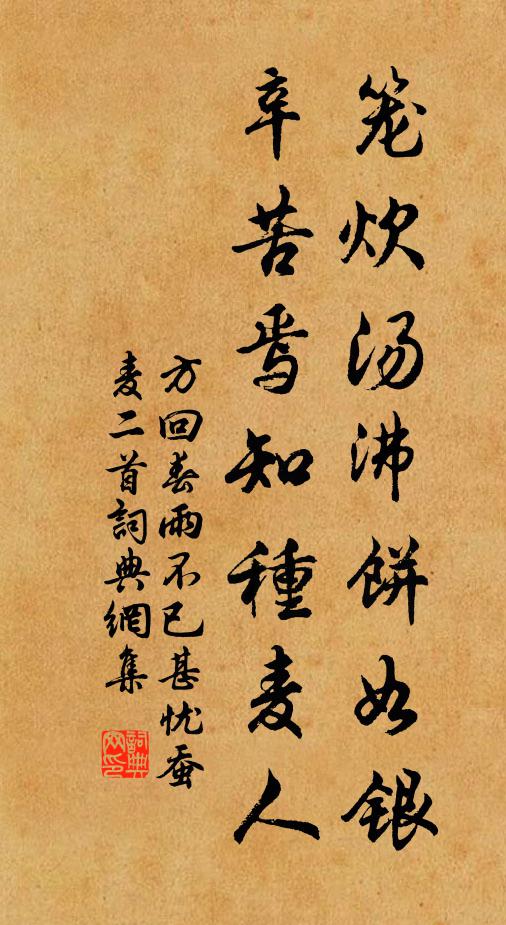 笼炊汤沸餅如银
辛苦焉知種麦人
方回春雨不已甚忧蚕
麦二首詞典網集
詞典網印